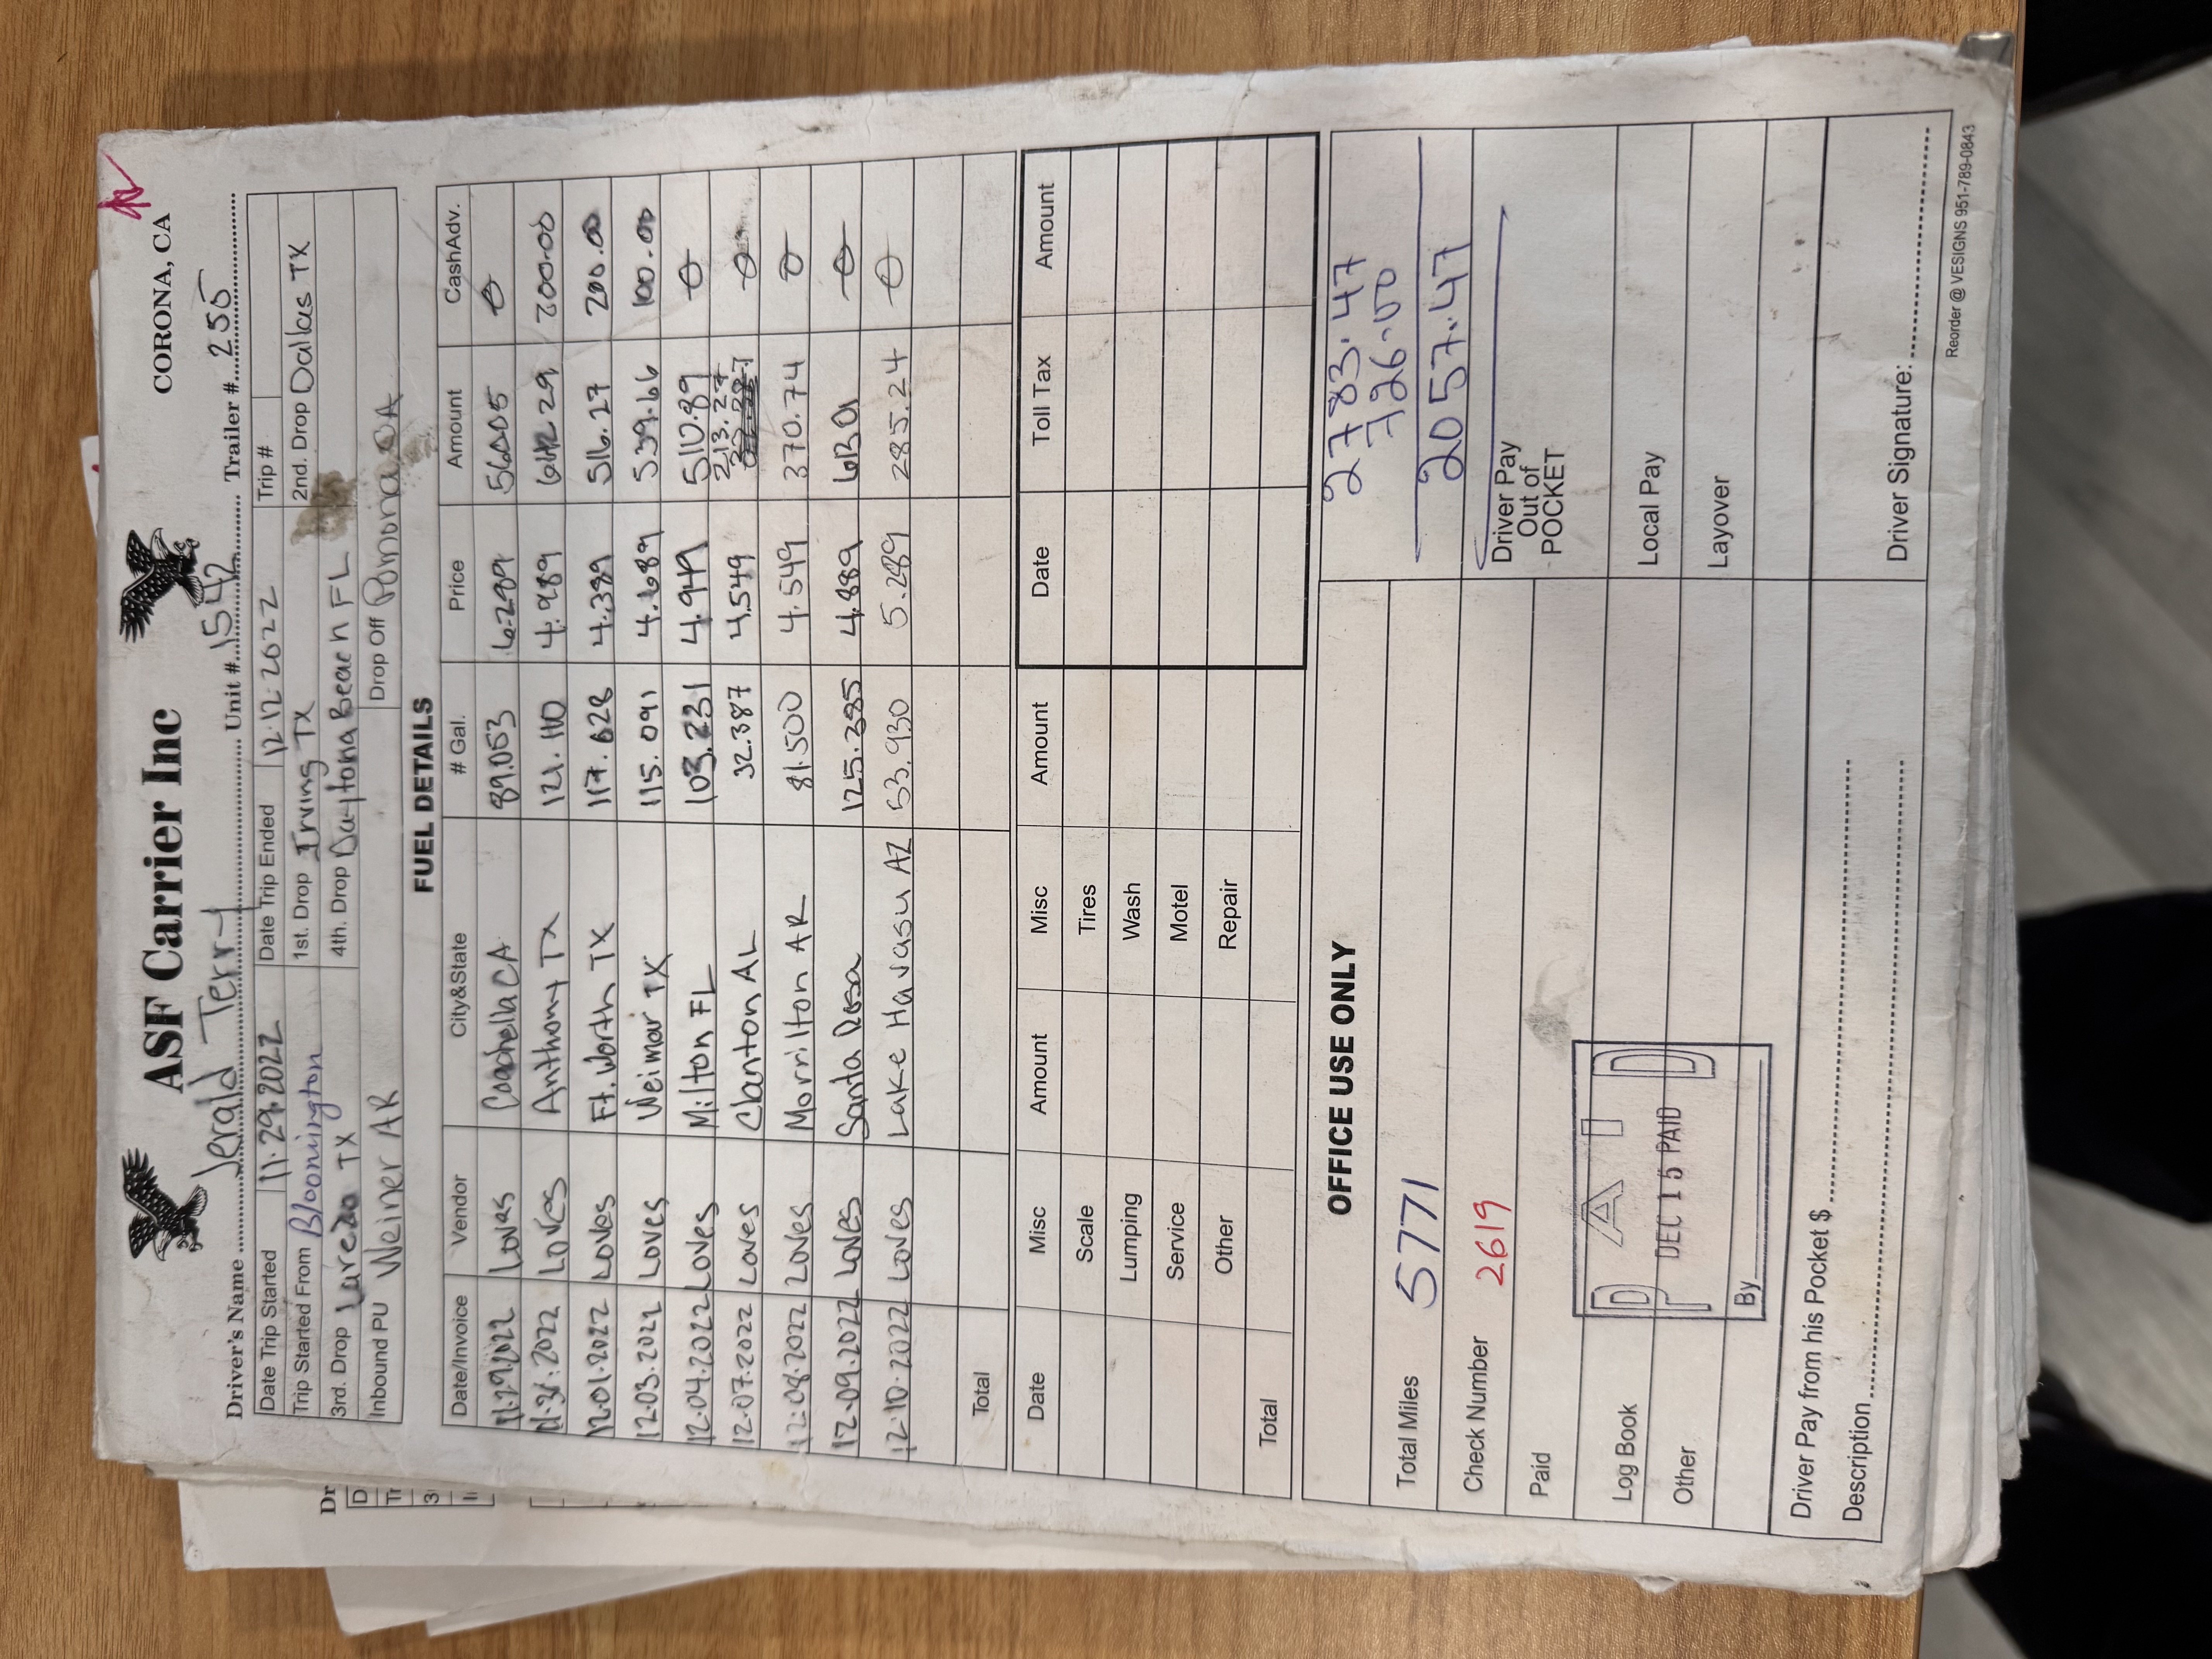 ASF Carrier Inc
CORONA, CA
Driver's Name Jerald Terry Unit # 1542 Trailer # 255
Date Trip Started 11.29.2022 Date Trip Ended 12.12.2022 Trip #
Trip Started From Bloomington 1st. Drop Irving TX 2nd. Drop Dallas TX
3rd. Drop Laredo TX 4th. Drop Daytona Beach FL
Inbound PU Weiner AR Drop Off Pomona CA
FUEL DETAILS
Date/Invoice Vendor City&State # Gal. Price Amount CashAdv.
11.29.2022 Loves Coachella CA 89.053 6.289 560.05 0
2022 Loves Anthony TX 121.110 4.989 642.29 200.00
12.01.2022 Loves Ft. Worth TX 117.628 4.389 516.27 200.00
12.03.2022 Loves Weimar TX 115.091 4.689 539.66 100.00
12.04.2022 Loves Milton FL 103.231 4.949 510.89 0
213.27
12.07.2022 Loves Clanton AL 32.387 4.549 0
12.08.2022 Loves Morrilton AR 81.500 4.549 370.74 0
12.09.2022 Loves Santa Rosa 125.385 4.889 613.01 0
12.10.2022 Loves Lake Havasu AZ 53.930 5.289 285.24 0
Total
Date Misc Amount Misc Amount Date Toll Tax Amount
Scale Tires
Lumping Wash
Service Motel
Other Repair
Total
OFFICE USE ONLY
2783.47
726.00
2057.47
Total Miles 5771
Check Number 2619
Driver Pay
Out of
POCKET
Paid
PAID
Log Book
DEC 15 PAID
Local Pay
Other
Layover
By
Driver Pay from his Pocket $
Description
Driver Signature:
Reorder @ VESIGNS 951-789-0843
Dr
D
Tr
3
I